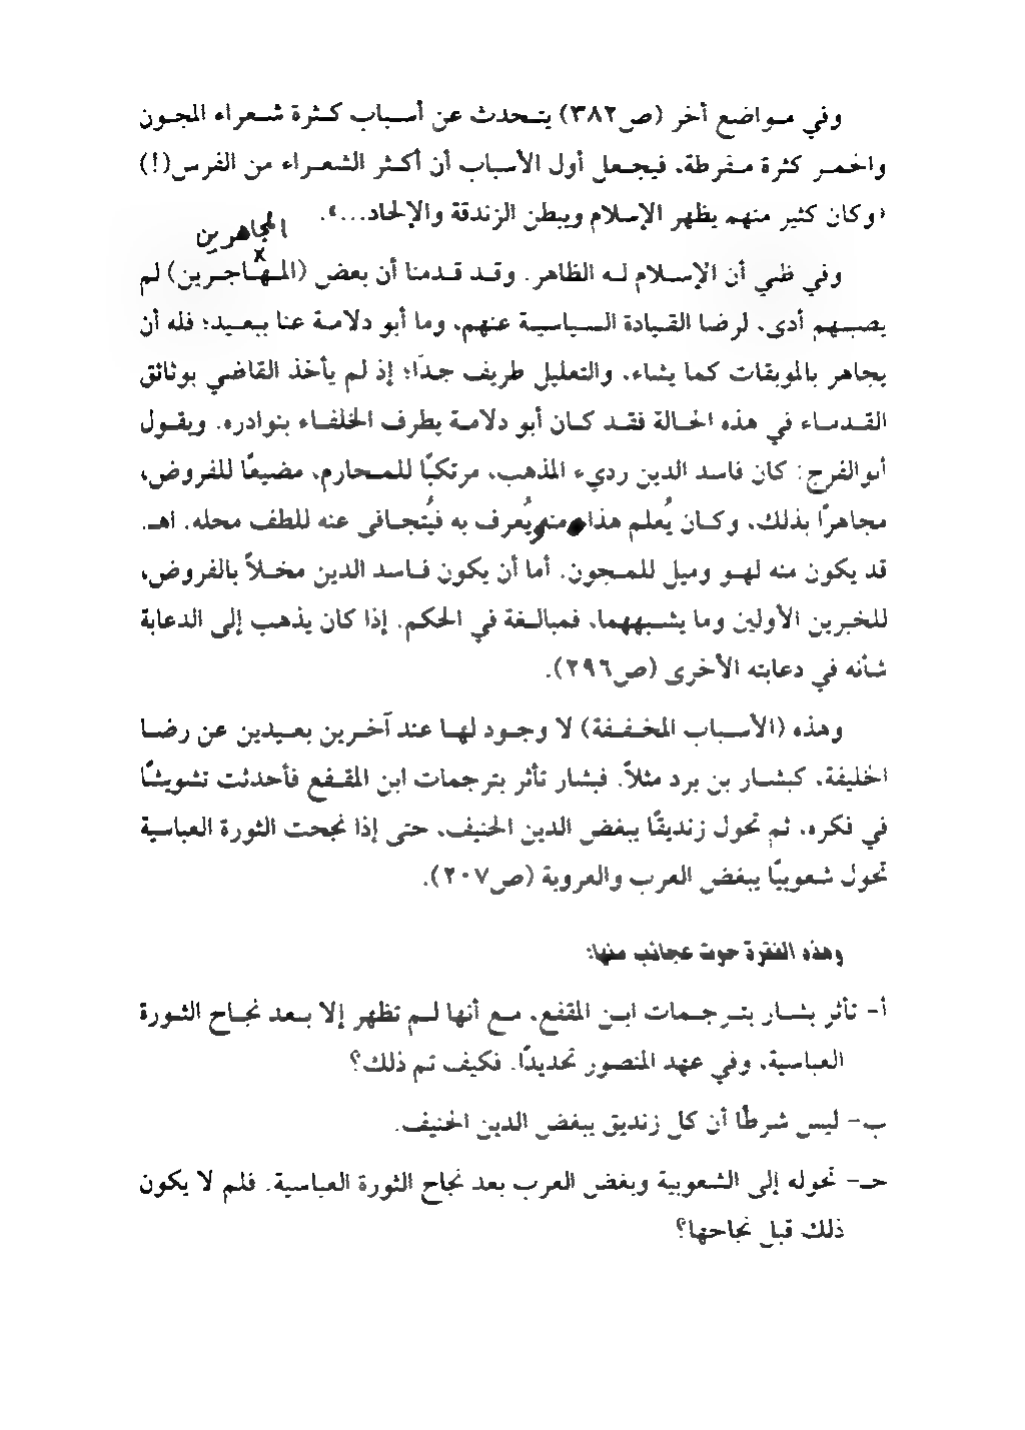 وفي مواضع أخر (ص٣٨٢) يتحدث عن أسباب كثرة شعراء المجون
والخمر كثرة مفرطة، فيجعل أول الأسباب أن أكثر الشعراء من الفرس(!)
«وكان كثير منهم يظهر الإسلام ويبطن الزندقة والإلحاد...».
المجاهرين
وفي ظني أن الإسلام له الظاهر. وقد قدمنا أن بعض (المهاجرين) لم
يصبهم أدى، لرضا القيادة السياسية عنهم، وما أبو دلامة عنا ببعيد؛ فله أن
يجاهر بالموبقات كما يشاء، والتعليل طريف جدًا؛ إذ لم يأخذ القاضي بوثائق
القدماء في هذه الحالة فقد كان أبو دلامة يطرف الخلفاء بنوادره. ويقول
أبوالفرج: كان فاسد الدين رديء المذهب، مرتكبًا للمحارم، مضيعًا للفروض،
مجاهرًا بذلك، وكان يُعلم هذا منه ويُعرف به فيُتجافى عنه للطف محله. اهـ.
قد يكون منه لهو وميل للمجون. أما أن يكون فاسد الدين مخلاً بالفروض،
للخبرين الأولين وما يشبههما، فمبالغة في الحكم. إذا كان يذهب إلى الدعابة
شأنه في دعابته الأخرى (ص٢٩٦).
وهذه (الأسباب المخففة) لا وجود لها عند آخرين بعيدين عن رضا
الخليفة، كبشار بن برد مثلاً. فبشار تأثر بترجمات ابن المقفع فأحدثت تشويشًا
في فكره، ثم تحول زنديقًا يبغض الدين الحنيف، حتى إذا نجحت الثورة العباسية
تحول شعوبيًا يبغض العرب والعروبة (ص٢٠٧).
وهذه الفقرة حوت عجائب منها:
أ- تأثر بشار بترجمات ابن المقفع، مع أنها لم تظهر إلا بعد نجاح الثورة
العباسية، وفي عهد المنصور تحديدًا. فكيف تم ذلك؟
ب- ليس شرطًا أن كل زنديق يبغض الدين الحنيف.
حـ- تحوله إلى الشعوبية وبغض العرب بعد نجاح الثورة العباسية. فلم لا يكون
ذلك قبل نجاحها؟